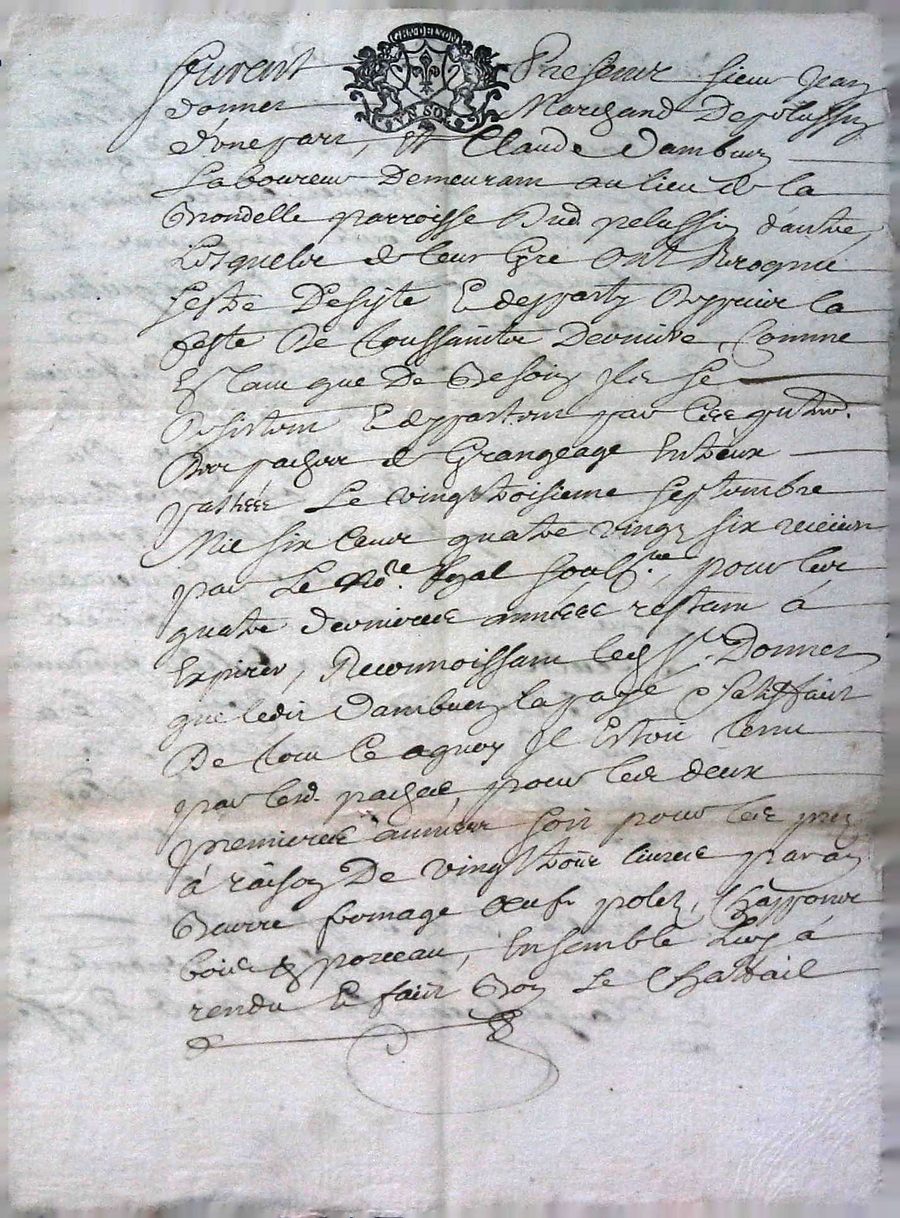 GEN DE LYON
VN SOL
furent Presents sieur Jean
Donnet Marchand De pelussin
d'une part, Et Claude Dambuin
Laboureur Demeurant au lieu de la
Bondelle parroisse Dud. pelussin d'autre
Lesquels de leur gre ont
Desiste Et departy Depuis la
feste De Toussaintz Derniere, Comme
Estant que De Besoin Ils se
Desistent Et departent par ces
Du pache de Grangeage Entreux
passees Le vingt troisieme septembre
Mil six Cents quatre vingz six receus
par Le no.re Royal soubs.ne, pour les
quatre dernieres années restant à
Expirer, Reconnoissant led. S.r Donnet
que ledit Dambuin la paye & satisfait
De tout Ce aquoy Il Estoit tenu
par led. pache, pour les deux
premieres années soit pour les prix
à raison De vingt livres par an
Beurre fromage Oeufs poletz, Chappons
bois & porceau, Ensemble Luy à
rendu Et fait Bon Le Chattail